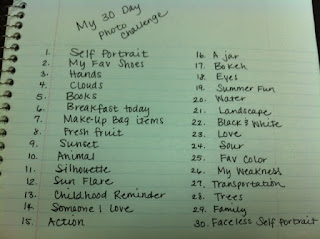 My 30 Day
photo
challenge
1. Self Portrait
2. My Fav Shoes
3. Hands
4. Clouds
5. Books
6. Breakfast today
7. Make-up Bag items
8. Fresh fruit
9. Sunset
10. Animal
11. Silhouette
12. Sun Flare
13. Childhood Reminder
14. Someone I Love
15. Action
16. A jar
17. Bokeh
18. Eyes
19. Summer Fun
20. Water
21. Landscape
22. Black & White
23. Love
24. Sour
25. Fav Color
26. My Weakness
27. Transportation
28. Trees
29. Family
30. Faceless Self Portrait